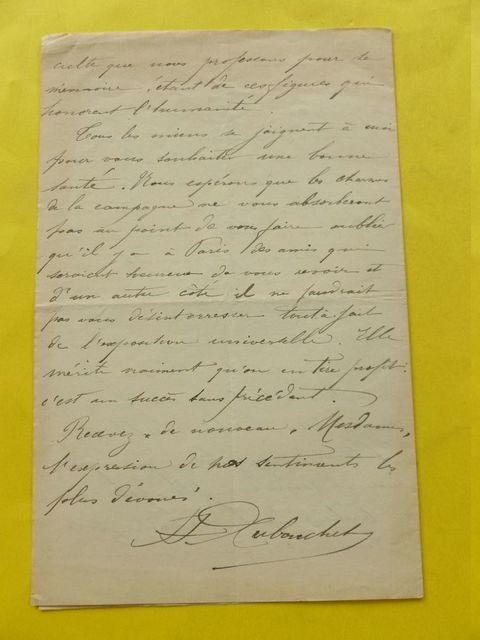 culte que nous professons pour sa
mémoire, étant de ces figures qui
honorent l'humanité.
Tous les miens se joignent à moi
pour vous souhaiter une bonne
santé. Nous espérons que les charmes
de la campagne ne vous absorberont
pas au point de vous faire oublier
qu'il y a à Paris des amis qui
seraient heureux de vous revoir et
d'un autre côté il ne faudrait
pas vous désintéresser tout à fait
de l'exposition universelle. Elle
mérite vraiment qu'on en tire profit :
c'est un succès sans précédent.
Recevez de nouveau, Mesdames,
l'expression de nos sentiments les
plus dévoués.
Dubouchet